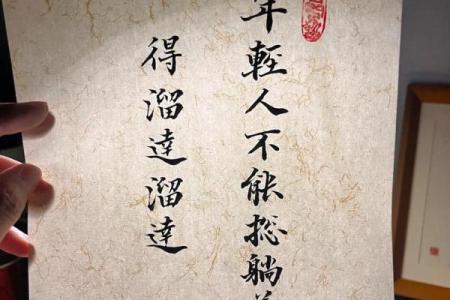 年輕人不能総躺
得溜達溜達